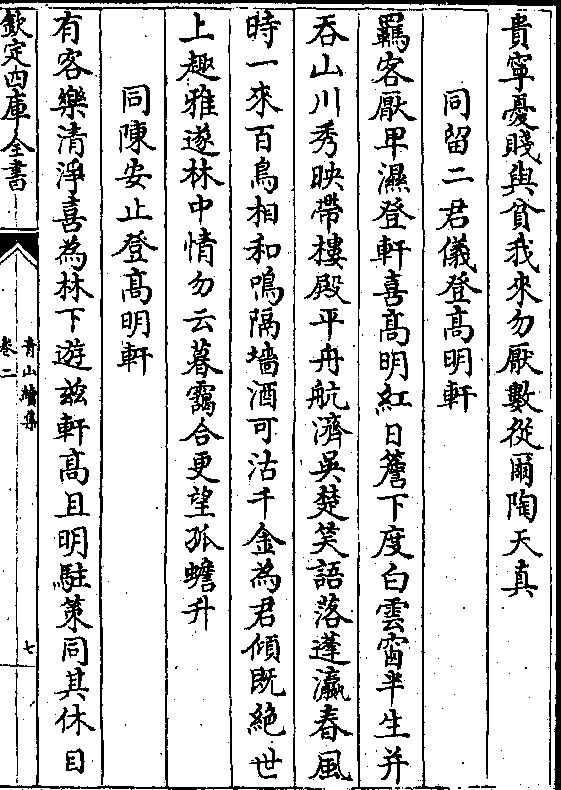 貴寧憂賤與貧我來勿厭數從爾陶天真
同留二君儀登高明軒
羈客厭卑濕登軒喜高明紅日簷下度白雲窗半生并
吞山川秀映帶樓殿平舟航濟吳楚笑語落蓬瀛春風
時一來百鳥相和鳴隔墻酒可沽千金為君傾既絶世
上趣雅遂林中情勿云暮靄合更望孤蟾升
同陳安止登高明軒
有客樂清淨喜為林下遊兹軒高且明駐策同其休目
欽定四庫全書
青山續集
卷二
七